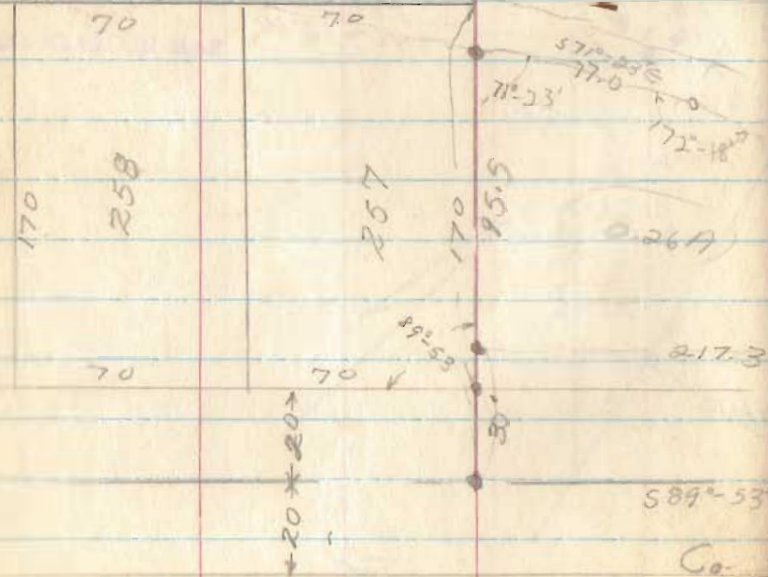 70
70
S71°-23'E
77.0
71°-23'
172°-18'
170
258
257
170
95.5
0.26A
89°-53
217.3
70
70
30'
20
20
S89°-53'
Co.